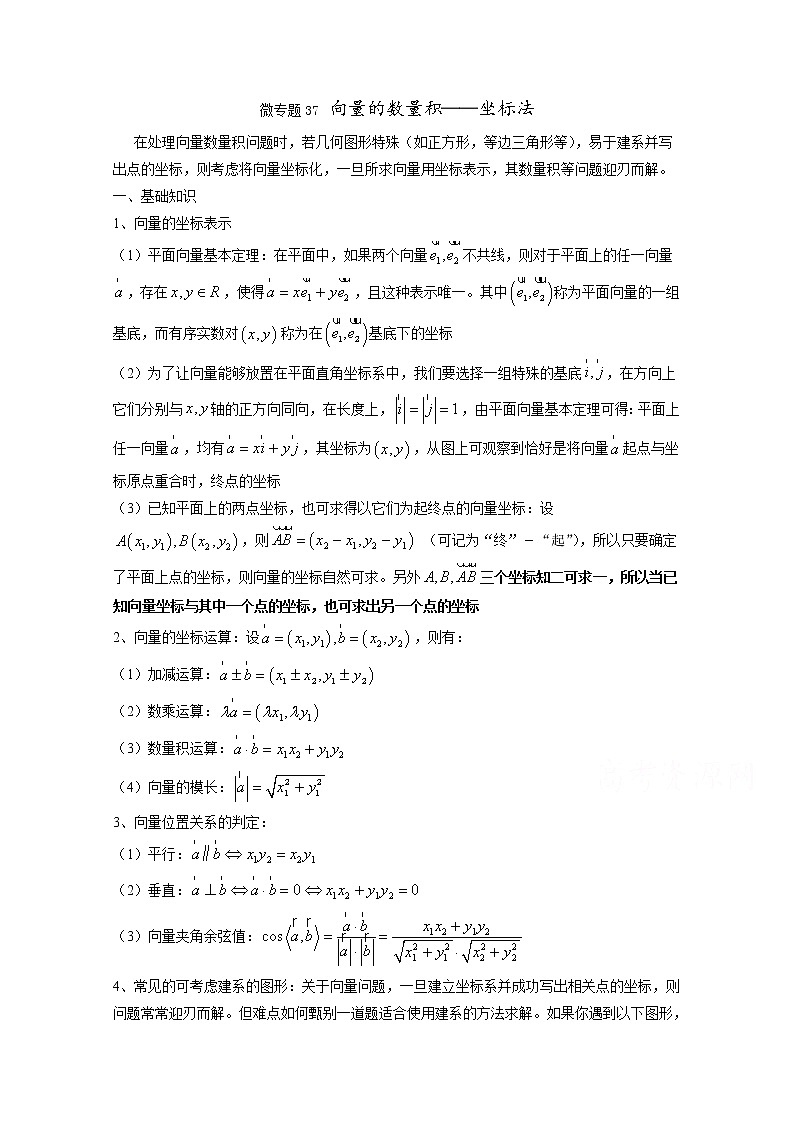 微专题37 向量的数量积——坐标法
在处理向量数量积问题时，若几何图形特殊（如正方形，等边三角形等），易于建系并写
出点的坐标，则考虑将向量坐标化，一旦所求向量用坐标表示，其数量积等问题迎刃而解。
一、基础知识
1、向量的坐标表示
（1）平面向量基本定理：在平面中，如果两个向量e₁,e₂不共线，则对于平面上的任一向量
a，存在x,y∈R，使得a=xe₁+ye₂，且这种表示唯一。其中(e₁,e₂)称为平面向量的一组
基底，而有序实数对(x,y)称为在(e₁,e₂)基底下的坐标
（2）为了让向量能够放置在平面直角坐标系中，我们要选择一组特殊的基底i,j，在方向上
它们分别与x,y轴的正方向同向，在长度上，|i|=|j|=1，由平面向量基本定理可得：平面上
任一向量a，均有a=xi+yj，其坐标为(x,y)，从图上可观察到恰好是将向量a起点与坐
标原点重合时，终点的坐标
（3）已知平面上的两点坐标，也可求得以它们为起终点的向量坐标：设
A(x₁,y₁),B(x₂,y₂)，则AB=(x₂−x₁,y₂−y₁)（可记为“终”－“起”），所以只要确定
了平面上点的坐标，则向量的坐标自然可求。另外A,B,AB三个坐标知二可求一，所以当已
知向量坐标与其中一个点的坐标，也可求出另一个点的坐标
2、向量的坐标运算：设a=(x₁,y₁),b=(x₂,y₂)，则有：
（1）加减运算：a±b=(x₁±x₂,y₁±y₂)
（2）数乘运算：λa=(λx₁,λy₁)
（3）数量积运算：a·b=x₁x₂+y₁y₂
（4）向量的模长：|a|=√(x₁²+y₁²)
3、向量位置关系的判定：
（1）平行：a∥b⇔x₁y₂=x₂y₁
（2）垂直：a⊥b⇔a·b=0⇔x₁x₂+y₁y₂=0
（3）向量夹角余弦值：cos⟨a,b⟩=(a·b)/(|a|·|b|)=(x₁x₂+y₁y₂)/(√(x₁²+y₁²)·√(x₂²+y₂²))
4、常见的可考虑建系的图形：关于向量问题，一旦建立坐标系并成功写出相关点的坐标，则
问题常常迎刃而解。但难点如何甄别一道题适合使用建系的方法求解。如果你遇到以下图形，